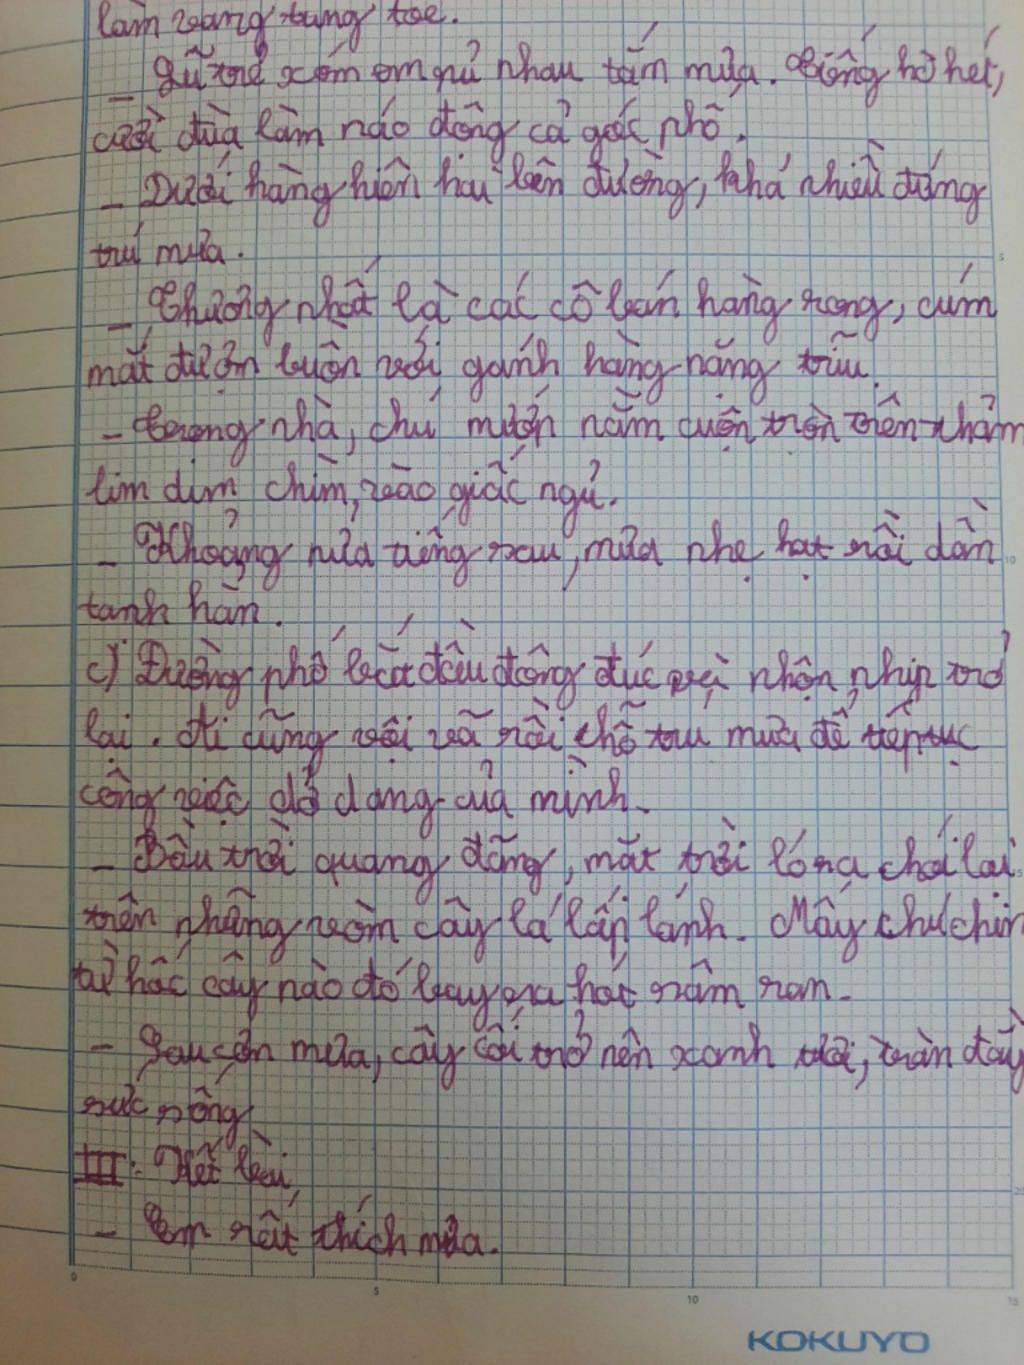 làm văng tung tóe.
_ Lũ trẻ xóm em rủ nhau tắm mưa. Tiếng hò hét,
cười đùa làm náo động cả góc phố.
_ Dưới hàng hiên hai bên đường, khá nhiều đứng
trú mưa.
_ Thương nhất là các cô bán hàng rong, cúm
mắt đượm buồn với gánh hàng nặng trĩu.
- Trong nhà, chú mướn nằm cuộn tròn trên thảm
lim dim chìm, vào giấc ngủ.
_ Khoảng nửa tiếng sau, mưa nhẹ hạt rồi dần
tạnh hẳn.
c) Đường phố bắt đầu đông đúc và nhộn nhịp trở
lại. Ai cũng vội vã rời chỗ trú mưa để tiếp tục
công việc dở dang của mình.
- Bầu trời quang đãng, mặt trời lóng chói lại
trên những vòm cây lá lấp lánh. Mấy chú chim
từ hốc cây nào đó bay ra hót râm ran.
- Sau cơn mưa, cây cối trở nên xanh tươi, tràn đầy
sức sống
III: Kết bài
- Em rất thích mưa.
0
5
10
15
5
10
20
KOKUYO